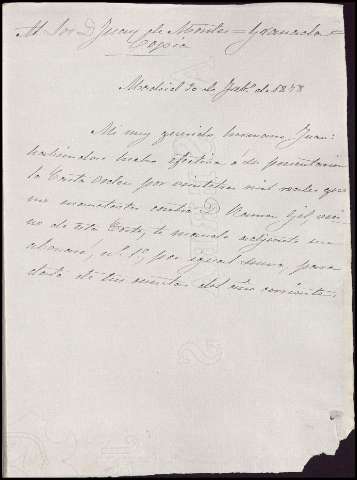 Al Sor D. Juan de Montes = Granada =
Copia
Madrid 30 de de 1848
Mi muy querido hermano Juan:
habiéndose hecho efectiva á su presentación
la Carta Orden por veintiocho mil reales que
me mandastes contra D. Ramon Gil, veci
no de esta Corte, te mando adjunto un
abonaré, nº 1º, por igual suma, para
data de tus cuentas del año corriente.